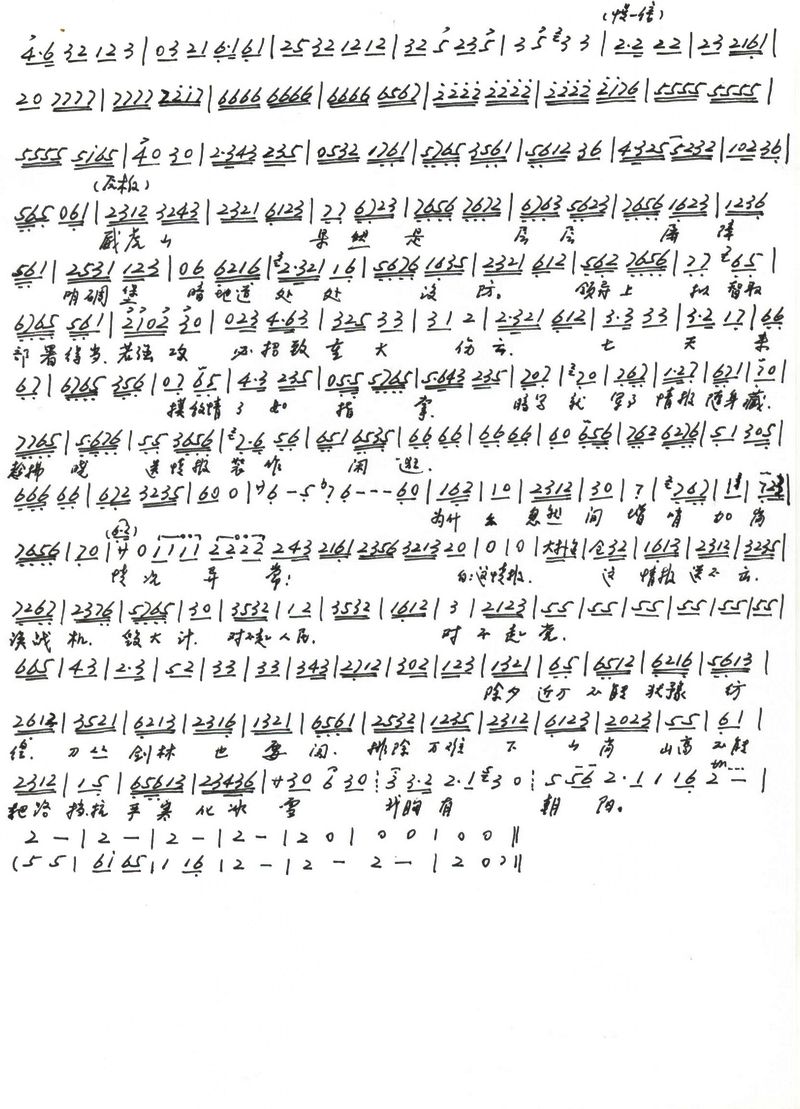 (慢一倍)
4·6 32 12 3 | 03 21 6·1 61 | 25 32 12 12 | 32 5 23 5 | 3 5 3 3 | 2·2 22 | 23 2161 |
20 7777 | 7777 7217 | 6666 6666 | 6666 6567 | 2222 2222 | 2222 2176 | 5555 5555 |
5555 5165 | 40 30 | 2·343 235 | 0532 1761 | 5765 3561 | 5612 36 | 4·325 5232 | 102 36 |
565 061 | 2312 3243 | 2321 6123 | 77 6723 | 7656 7672 | 6763 5623 | 7656 1623 | 1236
威虎山 果然是 层层 屏障
561 | 2531 123 | 06 6216 | 2·321 16 | 5676 1635 | 2321 612 | 562 7656 | 77 65 |
明碉堡 暗地道 处处 设防。 领导上 拟智取
6765 561 | 2102 30 | 023 4·63 | 325 33 | 31 2 | 2·321 612 | 3·3 33 | 3·2 17 | 66
部署得当. 若强攻 必招致重大 伤亡. 七天来
67 | 6765 356 | 07 65 | 4·3 235 | 055 5765 | 5643 235 | 707 | 70 | 767 | 1·27 | 671 | 70 |
摸敌情了如 指掌. 时写就 写了情报随身藏.
7765 | 5676 | 55 3656 | 7·6 56 | 651 6535 | 66 66 | 66 66 | 60 656 | 762 6276 | 51 305 |
趁拂晓 送情报装作 闲逛.
666 66 | 672 3235 | 60 0 | 6 - 5 76 - - - 60 | 162 | 10 | 2312 | 30 | 7 | 767 |
为什么忽然间增哨加岗
7656 | 70 | 0 1111 2222 243 2161 2356 3213 20 | 0 | 0 | 32 | 1613 | 2312 | 3235 |
情况异常! 白:这情报. 这情报送不出.
7267 | 2376 | 5765 | 30 | 3532 | 12 | 3532 | 1612 | 3 | 2123 | 55 | 55 | 55 | 55 | 55 | 55 |
误战机. 毁大计. 对不起人民. 对不起党.
665 | 43 | 2·3 | 52 | 33 | 33 | 343 | 2712 | 302 | 123 | 1321 | 65 | 6512 | 6216 | 5613 |
除夕近万不能犹豫彷
2612 | 3521 | 6213 | 2316 | 1321 | 6561 | 2532 | 1235 | 2312 | 6123 | 2023 | 55 | 61 |
徨. 刀丛剑林也要闯. 排除万难下山岗山高不能
2312 | 15 | 65613 | 23436 | 30 6 30 3 3·2 2·1 3 0 5 56 2·1 1 16 2 — |
把路挡.抗严寒化冰雪 我胸有 朝阳。
2 — | 2 — | 2 — | 2 — | 20 | 00 | 00 ‖
(55 | 61 65 | 1 16 | 2 — | 2 — 2 — | 20) ‖